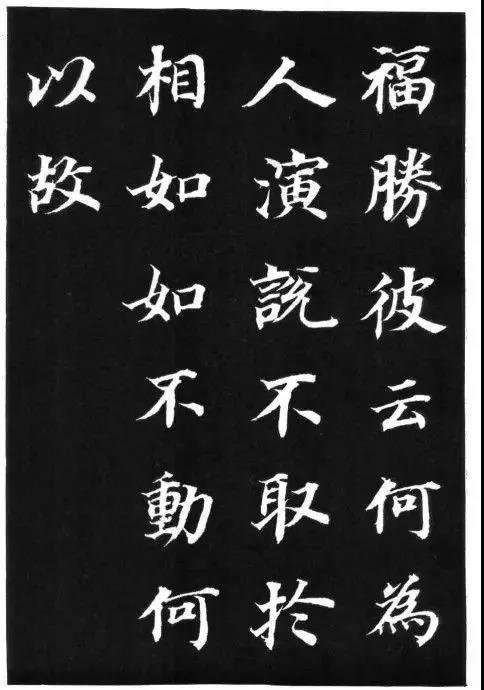 福勝彼云何為
人演說不取於
相如如不動何
以故